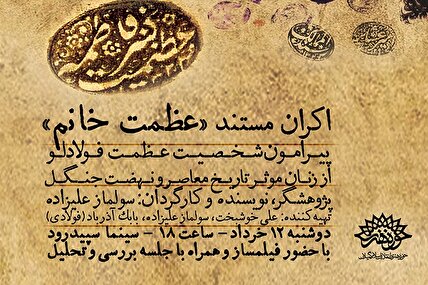 اکران مستند «عظمت خانم»
پیرامون شخصیت عظمت فولادلو
از زنان موثر تاریخ معاصر و نهضت جنگل
پژوهشگر، نویسنده و کارگردان: سولماز علیزاده
تهیه کننده: علی خوشبخت، سولماز علیزاده، بابک آذرباد (فولادی)
دوشنبه ۱۲ خرداد - ساعت ۱۸ - سینما سپیدرود
با حضور فیلمساز و همراه با جلسه بررسی و تحلیل